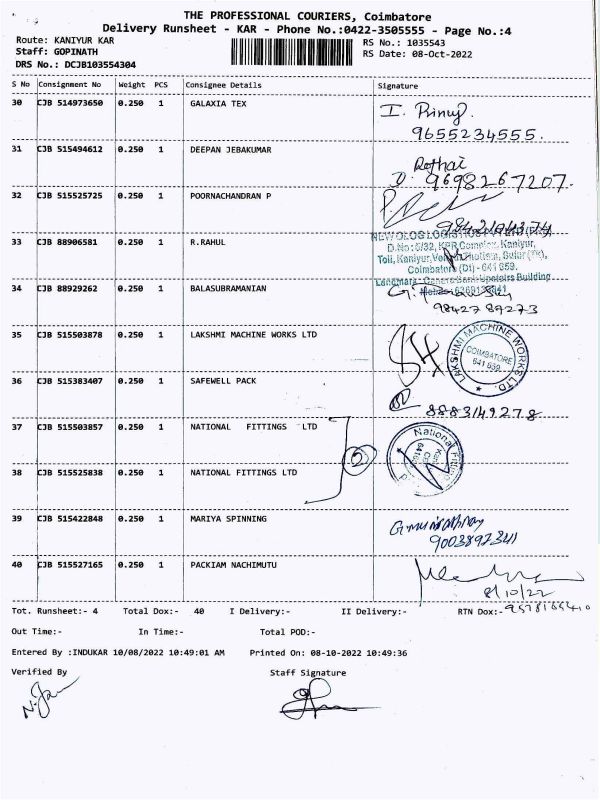 THE PROFESSIONAL COURIERS, Coimbatore
Delivery Runsheet - KAR - Phone No.:0422-3505555 - Page No.:4
Route: KANIYUR KAR
RS No.: 1035543
Staff: GOPINATH
RS Date: 08-Oct-2022
DRS No.: DCJB103554304
S No Consignment No Weight PCS Consignee Details Signature
30 CJB 514973650 0.250 1 GALAXIA TEX
9655234555.
31 CJB 515494612 0.250 1 DEEPAN JEBAKUMAR
9698267207.
32 CJB 515525725 0.250 1 POORNACHANDRAN P
33 CJB 88906581 0.250 1 R.RAHUL
D.No: 6/32, KPR Complex, Kaniyur,
Coimbatore (Dt) - 641 659.
34 CJB 88929262 0.250 1 BALASUBRAMANIAN
98427 89273
35 CJB 515503878 0.250 1 LAKSHMI MACHINE WORKS LTD
LAKSHMI MACHINE WORKS LTD.
COIMBATORE
641 659
36 CJB 515383407 0.250 1 SAFEWELL PACK
8883149278
37 CJB 515503857 0.250 1 NATIONAL FITTINGS LTD
2
National
38 CJB 515525838 0.250 1 NATIONAL FITTINGS LTD
39 CJB 515422848 0.250 1 MARIYA SPINNING
9003892341
40 CJB 515527165 0.250 1 PACKIAM NACHIMUTU
8/10/22
Tot. Runsheet:- 4 Total Dox:- 40 I Delivery:- II Delivery:- RTN Dox:-
Out Time:- In Time:- Total POD:-
Entered By :INDUKAR 10/08/2022 10:49:01 AM Printed On: 08-10-2022 10:49:36
Verified By Staff Signature